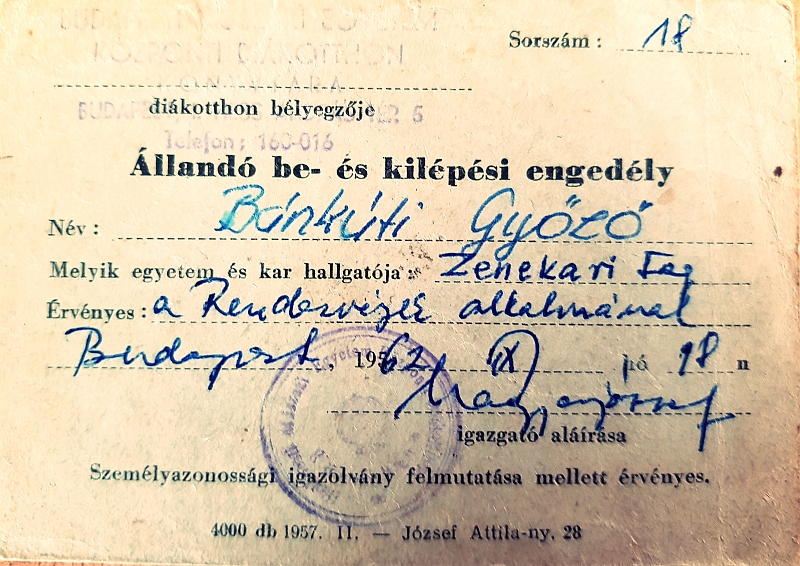 Sorszám: 18
KÖZPONTI DIÁKOTTHON
diákotthon bélyegzője
Telefon: 160-016
Állandó be- és kilépési engedély
Név: Bánkúti Győző
Melyik egyetem és kar hallgatója: Zenekari Tag
Érvényes: a Rendezvények alkalmával
Budapest, 1962 IX hó 18 n
igazgató aláírása
Személyazonossági igazolvány felmutatása mellett érvényes.
4000 db 1957. II. — József Attila-ny. 28